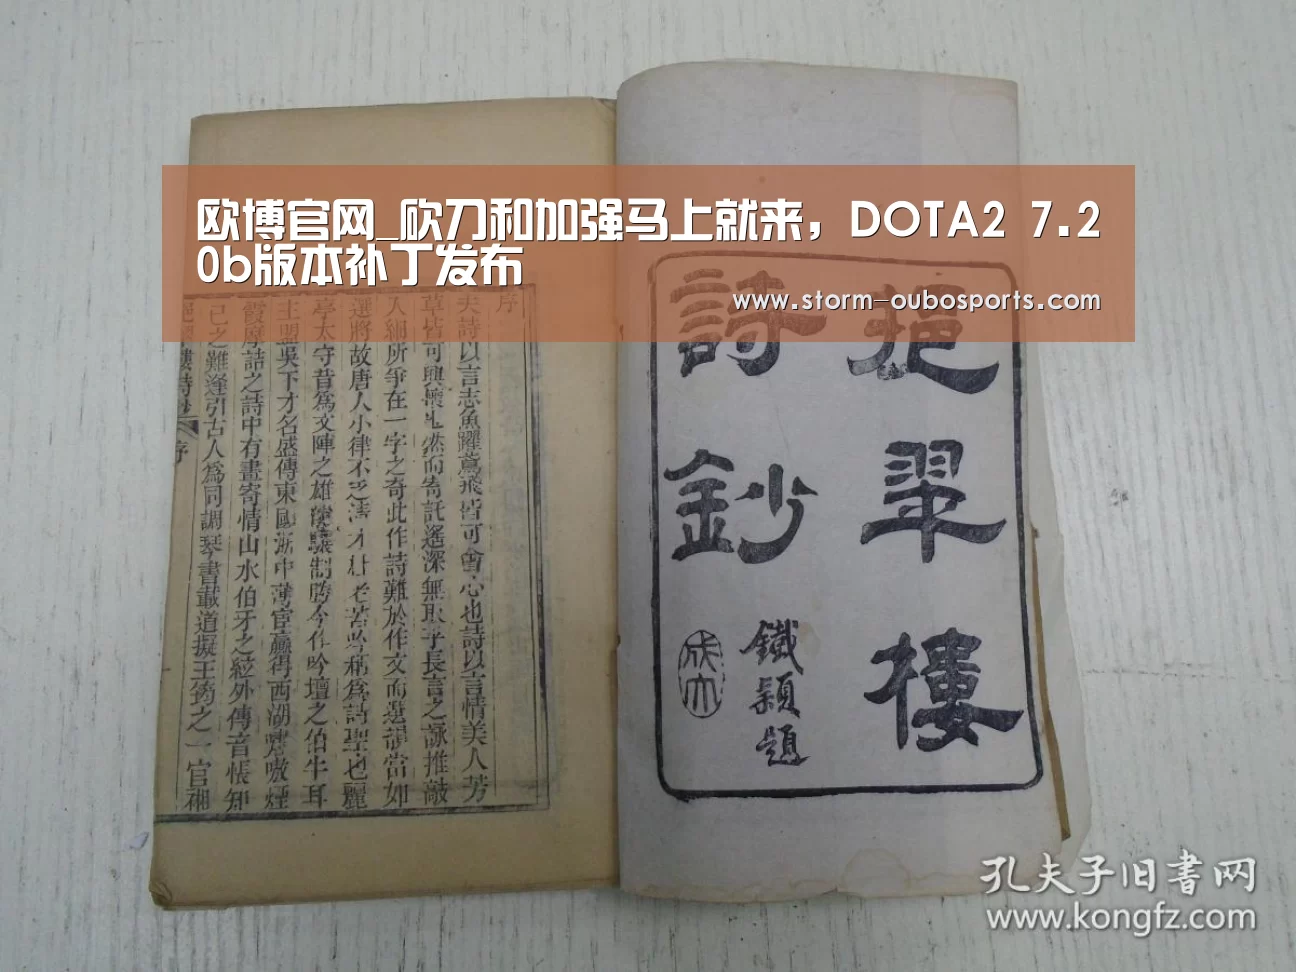 欧博官网_砍刀和加强马上就来，DOTA2 7.2
0b版本补丁发布
www.storm-oubosports.com
挹翠樓
詩鈔
鐵潁題
序
夫詩以言志魚躍鳶飛皆可會心也詩以言情美人芳
草皆可興懷
然而寄託遙深無取乎長言之詠推敲
入細所爭在一字之奇此作詩難於作文而選詩當如
選將故唐人小律不乏清才杜老苦吟稱為詩聖也麗
亭太守昔為文陣之雄
制勝今作吟壇之伯牛耳
主盟吳下才名盛傳東甌浙中薄宦贏得西湖嘯嗷煙
霞摩詰之詩中有畫寄情山水伯牙之絃外傳音悵知
己之難逢引古人為同調琴書載道擬王筠之一官
挹翠樓詩鈔
序
孔夫子旧书网
www.kongfz.com